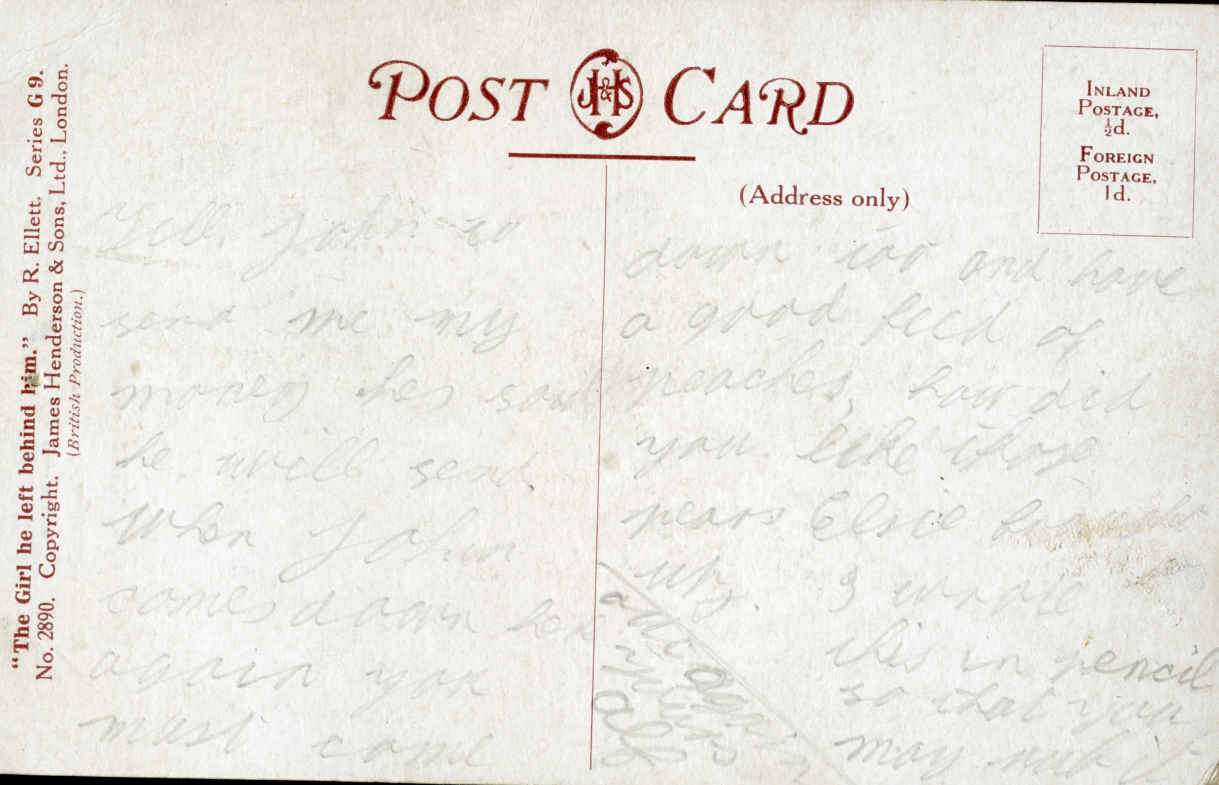 "The Girl he left behind him." By R. Ellett. Series G 9.
No. 2890. Copyright. James Henderson & Sons, Ltd., London.
(British Production.)
POST J.H&S CARD
INLAND
POSTAGE,
½d.
FOREIGN
POSTAGE,
1d.
(Address only)
Tell John to
send me my
money hes said
he will send.
When John
comes down here
again you
must come
down too and have
a good feed of
peaches, how did
you like those
pears Elsie brought
up. I wrote
this in pencil
so that you
may rub it